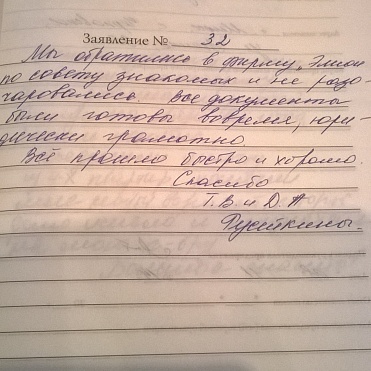 Заявление № 32
Мы обратились в фирму „Элион
по совету знакомых и не разо-
чаровались. Все документы
были готовы вовремя, юри-
дически грамотно.
Всё прошло быстро и хорошо.
Спасибо
Т.В. и Д.А